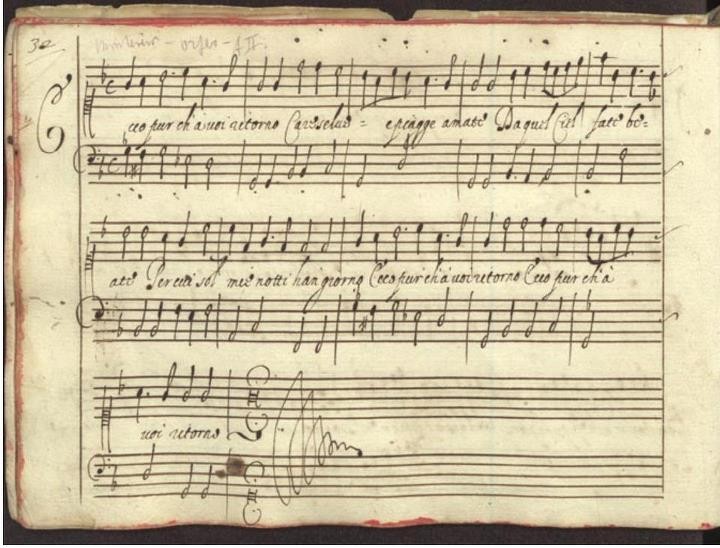 32 Monteverdi - orfeo - A II.
E cco pur ch'à voi ritorno Care selve = e piagge amate Da quel Ciel fatte be=
ate Per cui sol mie notti han giorno Ecco pur ch'à voi ritorno Ecco pur ch'à
voi ritorno